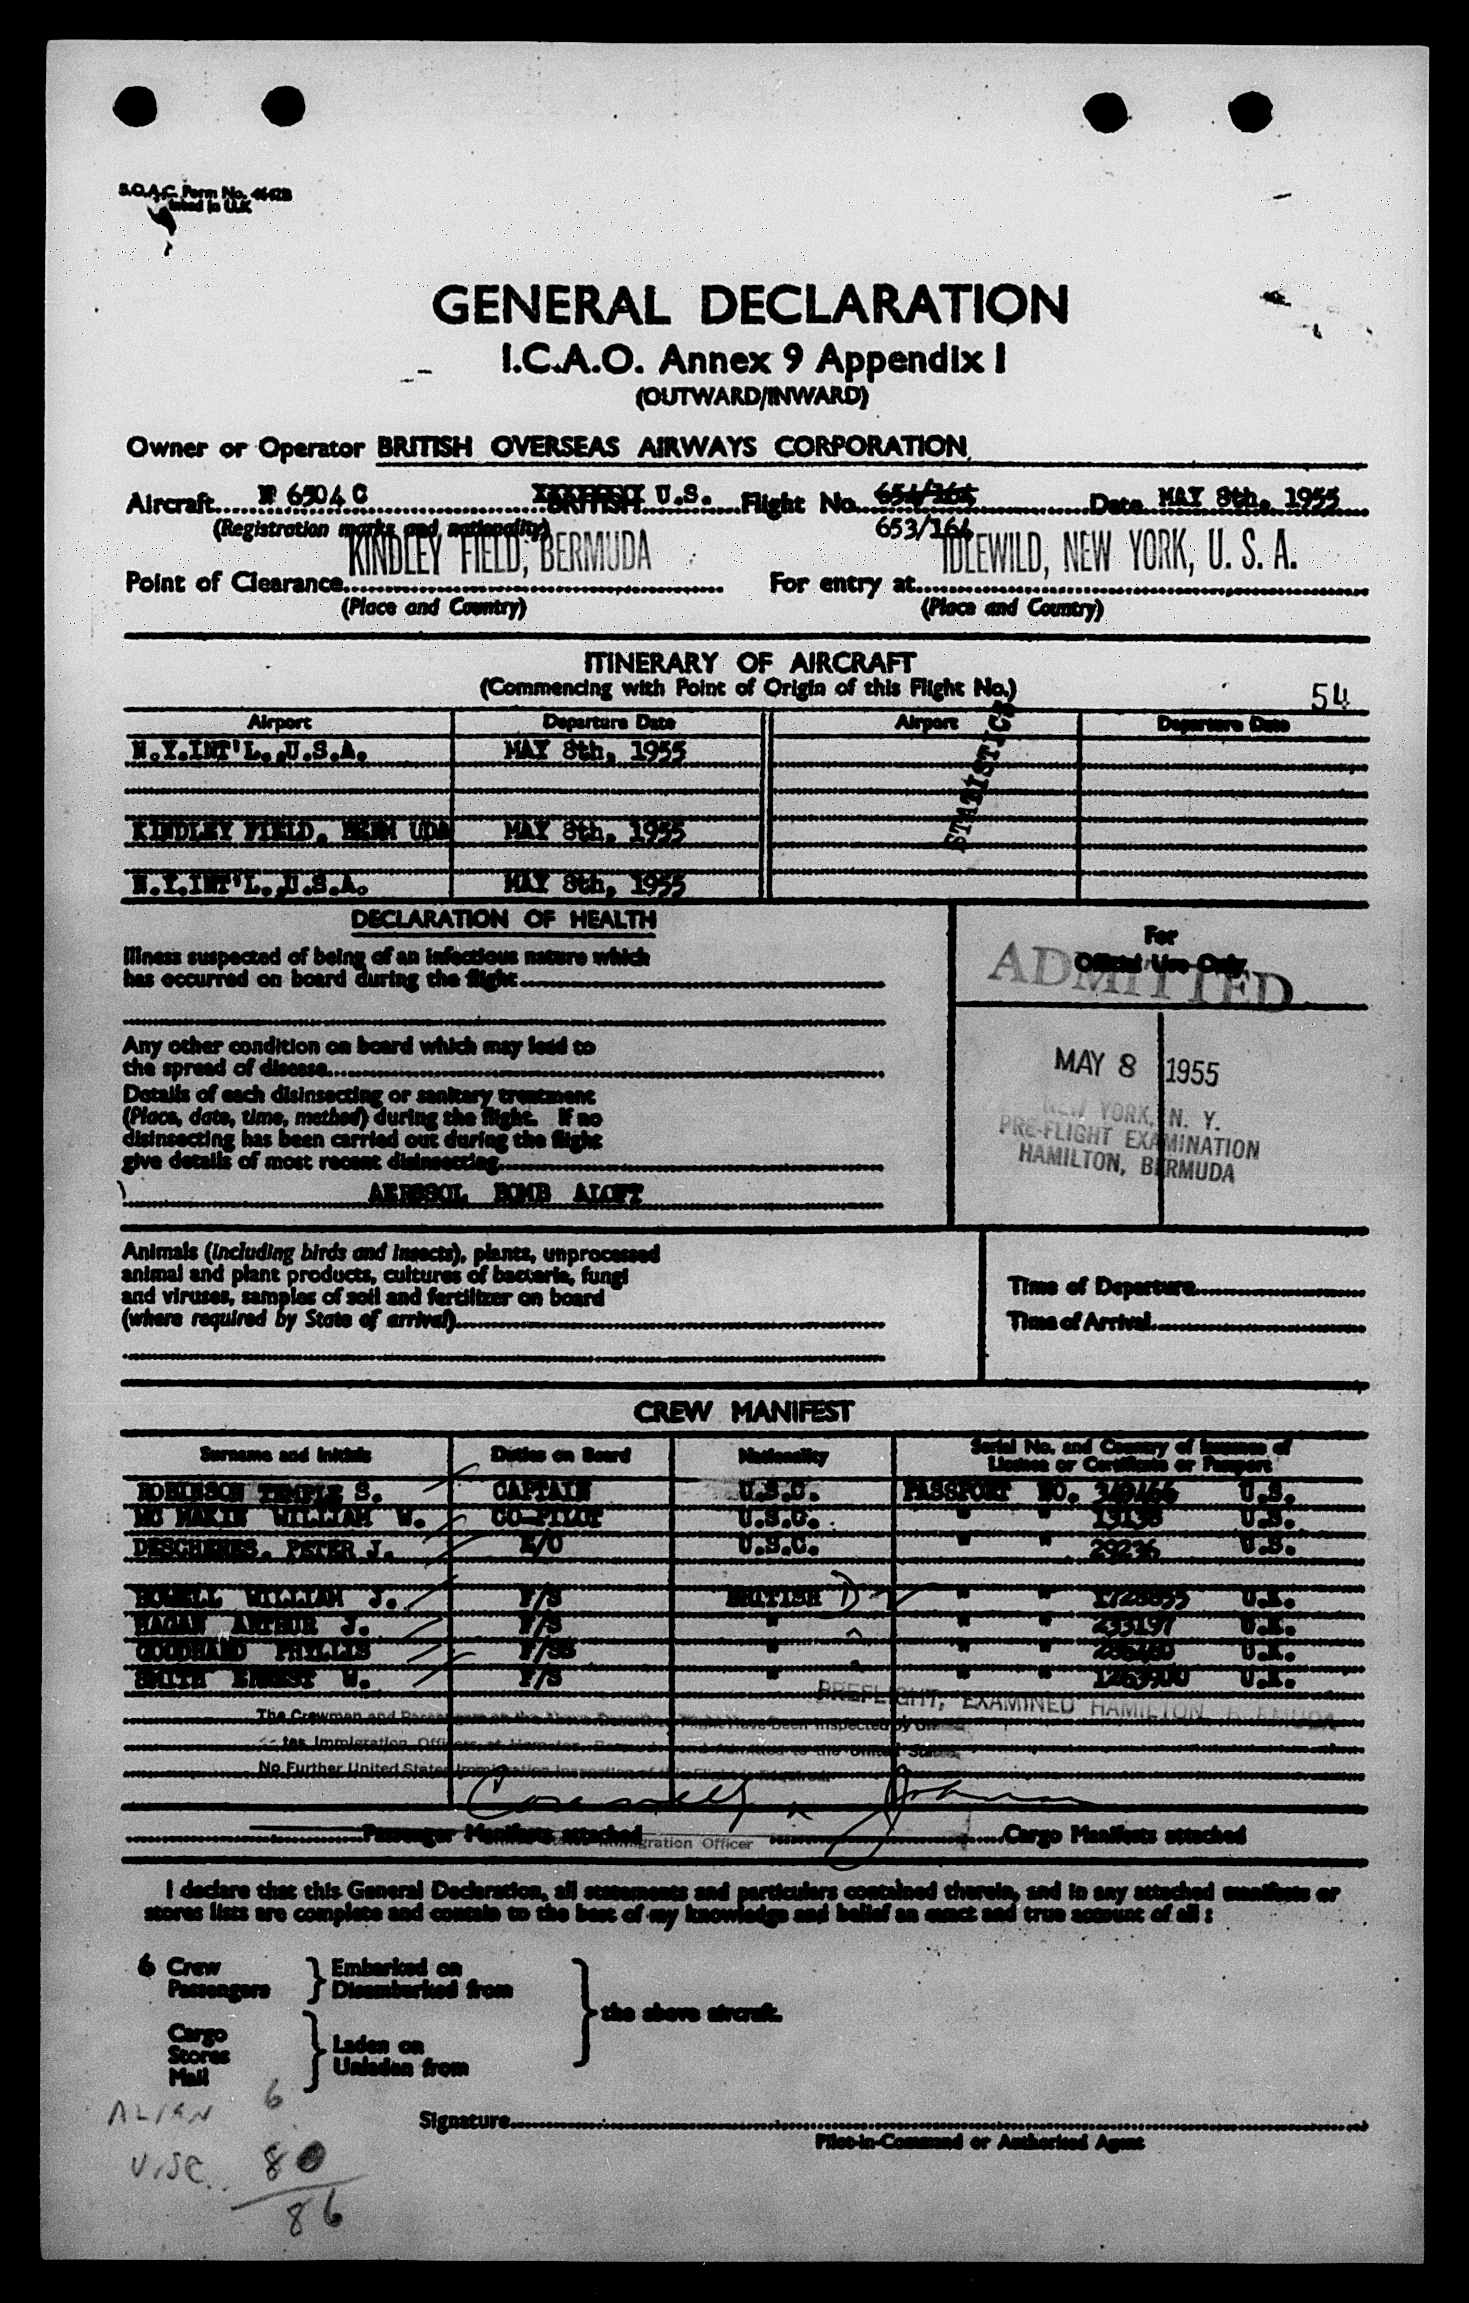 B.O.A.C. Form No. 4642B
Printed in U.K.
GENERAL DECLARATION
I.C.A.O. Annex 9 Appendix I
(OUTWARD/INWARD)
Owner or Operator BRITISH OVERSEAS AIRWAYS CORPORATION
Aircraft N 6504 C BRITISH U.S. Flight No. 654/364 Date MAY 8th, 1955
(Registration marks and nationality) 653/164
KINDLEY FIELD, BERMUDA IDLEWILD, NEW YORK, U. S. A.
Point of Clearance For entry at
(Place and Country) (Place and Country)
ITINERARY OF AIRCRAFT
(Commencing with Point of Origin of this Flight No.) 54
Airport Departure Date Airport Departure Date
N.Y.INT'L.,U.S.A. MAY 8th, 1955
STATISTICS
KINDLEY FIELD, BERM UDA MAY 8th, 1955
N.Y.INT'L.,U.S.A. MAY 8th, 1955
DECLARATION OF HEALTH
Illness suspected of being of an infectious nature which
has occurred on board during the flight
For
Official Use Only
ADMITTED
Any other condition on board which may lead to
the spread of disease
Details of each disinsecting or sanitary treatment
(Place, date, time, method) during the flight. If no
disinsecting has been carried out during the flight
give details of most recent disinsecting
MAY 8 1955
NEW YORK, N. Y.
PRE-FLIGHT EXAMINATION
HAMILTON, BERMUDA
AERSSOL BOMB ALOFT
Animals (including birds and insects), plants, unprocessed
animal and plant products, cultures of bacteria, fungi
and viruses, samples of soil and fertilizer on board
(where required by State of arrival)
Time of Departure
Time of Arrival
CREW MANIFEST
Surname and Initials Duties on Board Nationality Serial No. and Country of Issuance of
Licence or Certificate or Passport
ROBINSON TEMPLE S. CAPTAIN U.S.C. PASSPORT NO. 349466 U.S.
MC MAKIN WILLIAM W. CO-PILOT U.S.C. " " 13138 U.S.
DESCHENES. PETER J. E/O U.S.C. " " 29236 U.S.
HOWELL WILLIAM J. F/S BRITISH " " 1728855 U.K.
HAGAN ARTHUR J. F/S " " " 233197 U.K.
GOODHAND PHYLLIS F/SS " " " U.K.
SMITH ERNEST W. F/S " " " 1263900 U.K.
PREFLIGHT, EXAMINED HAMILTON BERMUDA
The Crewmen and Passengers on the Above Described Flight Have Been Inspected by United
States Immigration Officers at Hamilton, Bermuda and Admitted to the United States.
No Further United States Immigration Inspection of this Flight is Required.
Passenger Manifests attached Immigration Officer Cargo Manifests attached
I declare that this General Declaration, all statements and particulars contained therein, and in any attached manifests or
stores lists are complete and contain to the best of my knowledge and belief an exact and true account of all :
6 Crew Embarked on
Passengers Disembarked from
the above aircraft.
Cargo
Stores Laden on
Mail Unladen from
ALIEN 6
Signature
Pilot-in-Command or Authorised Agent
USC 80
86